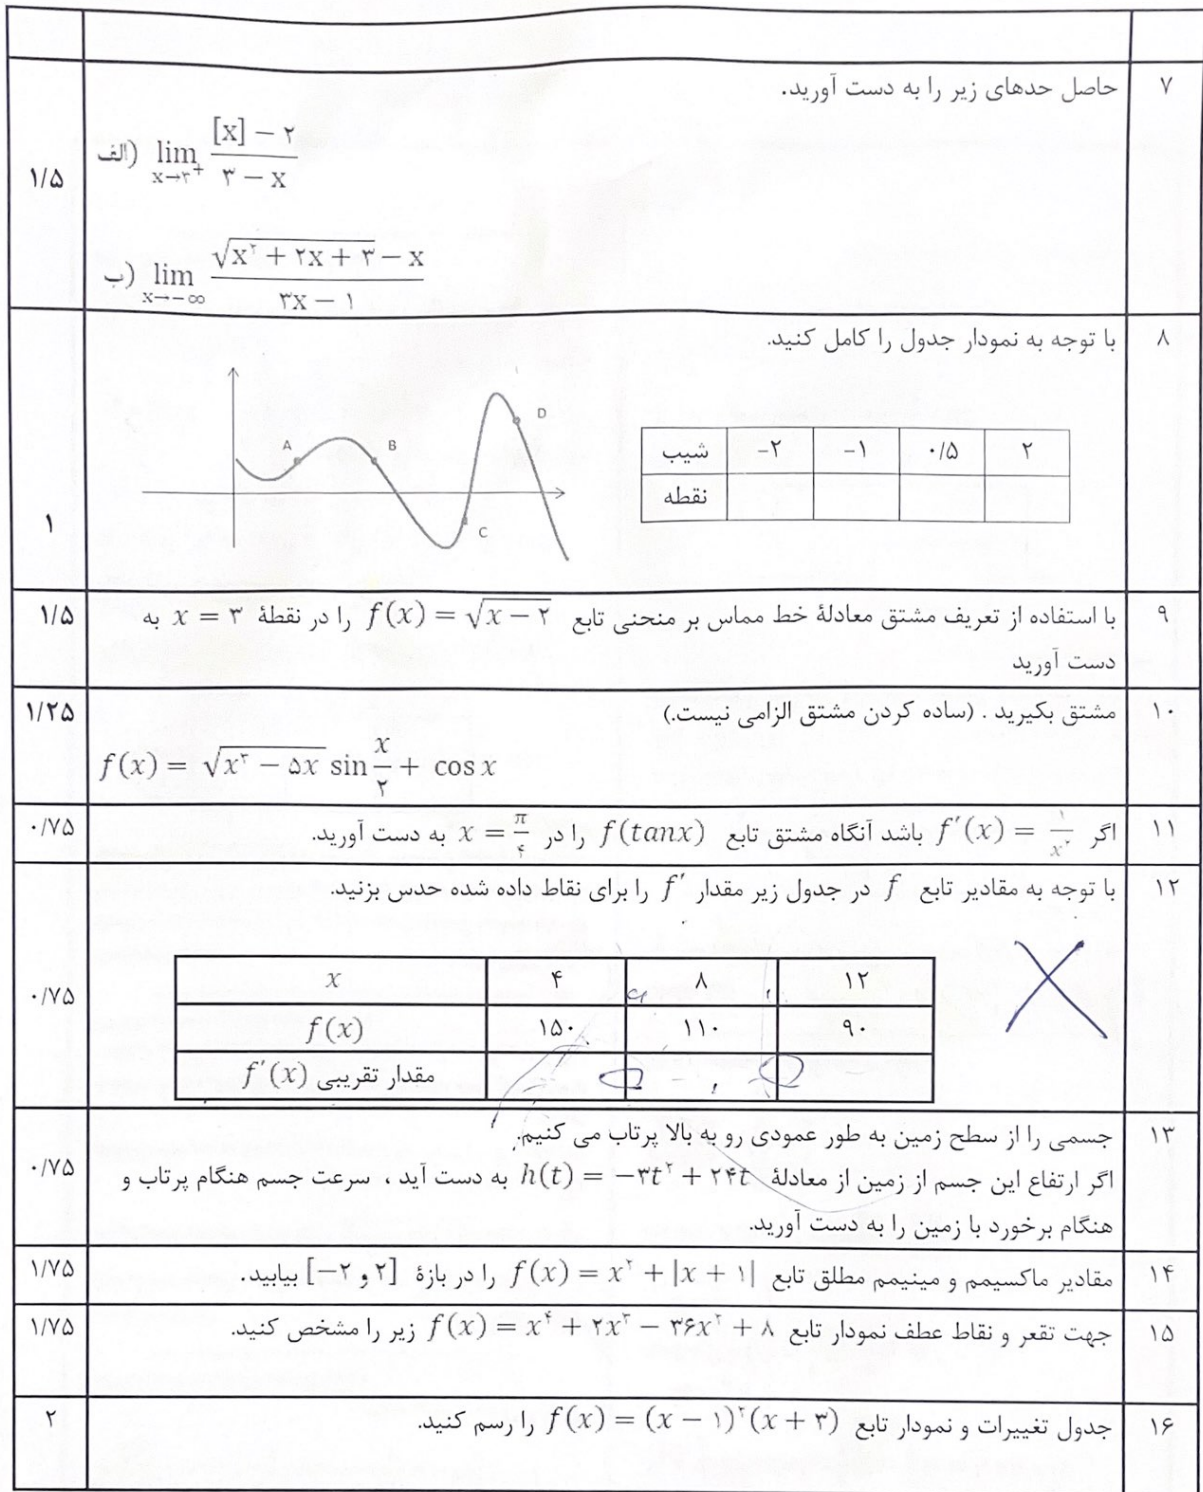 ۷ حاصل حدهای زیر را به دست آورید.
الف) lim x→۳⁺ ([x] − ۲)/(۳ − x)
۱/۵
ب) lim x→−∞ (√(x² + ۲x + ۳) − x)/(۳x − ۱)
۸ با توجه به نمودار جدول را کامل کنید.
A B C D
شیب −۲ −۱ ۰/۵ ۲
نقطه
۱
۹ با استفاده از تعریف مشتق معادلهٔ خط مماس بر منحنی تابع f(x) = √(x − ۲) را در نقطهٔ x = ۳ به ۱/۵
دست آورید
۱۰ مشتق بکیرید . (ساده کردن مشتق الزامی نیست.) ۱/۲۵
f(x) = √(x³ − ۵x) sin x/۲ + cos x
۱۱ اگر f′(x) = ۱/x² باشد آنگاه مشتق تابع f(tanx) را در x = π/۴ به دست آورید. ۰/۷۵
۱۲ با توجه به مقادیر تابع f در جدول زیر مقدار f′ را برای نقاط داده شده حدس بزنید.
x ۴ ۸ ۱۲
f(x) ۱۵۰ ۱۱۰ ۹۰
مقدار تقریبی f′(x)
۰/۷۵
۱۳ جسمی را از سطح زمین به طور عمودی رو به بالا پرتاب می کنیم.
اگر ارتفاع این جسم از زمین از معادلهٔ h(t) = −۳t² + ۲۴t به دست آید ، سرعت جسم هنگام پرتاب و ۰/۷۵
هنگام برخورد با زمین را به دست آورید.
۱۴ مقادیر ماکسیمم و مینیمم مطلق تابع f(x) = x² + |x + ۱| را در بازهٔ [−۲ و ۲] بیابید. ۱/۷۵
۱۵ جهت تقعر و نقاط عطف نمودار تابع f(x) = x⁴ + ۲x³ − ۳۶x² + ۸ زیر را مشخص کنید. ۱/۷۵
۱۶ جدول تغییرات و نمودار تابع f(x) = (x − ۱)²(x + ۳) را رسم کنید. ۲